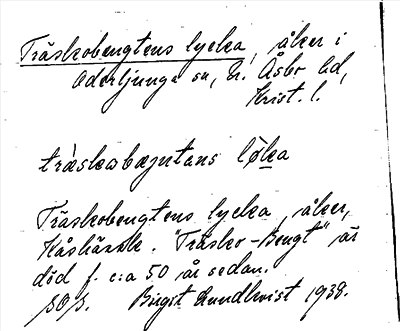 Träskobengtens lycka, åker i
Oderljunga sn, N. Åsbo hd,
Krist. l.
träskobæŋtans løka
Träskobengtens lycka, åker,
Kåshäxsle. "Träsko-Bengt" är
död f. c:a 50 år sedan.
Birgit Lundkvist 1938.